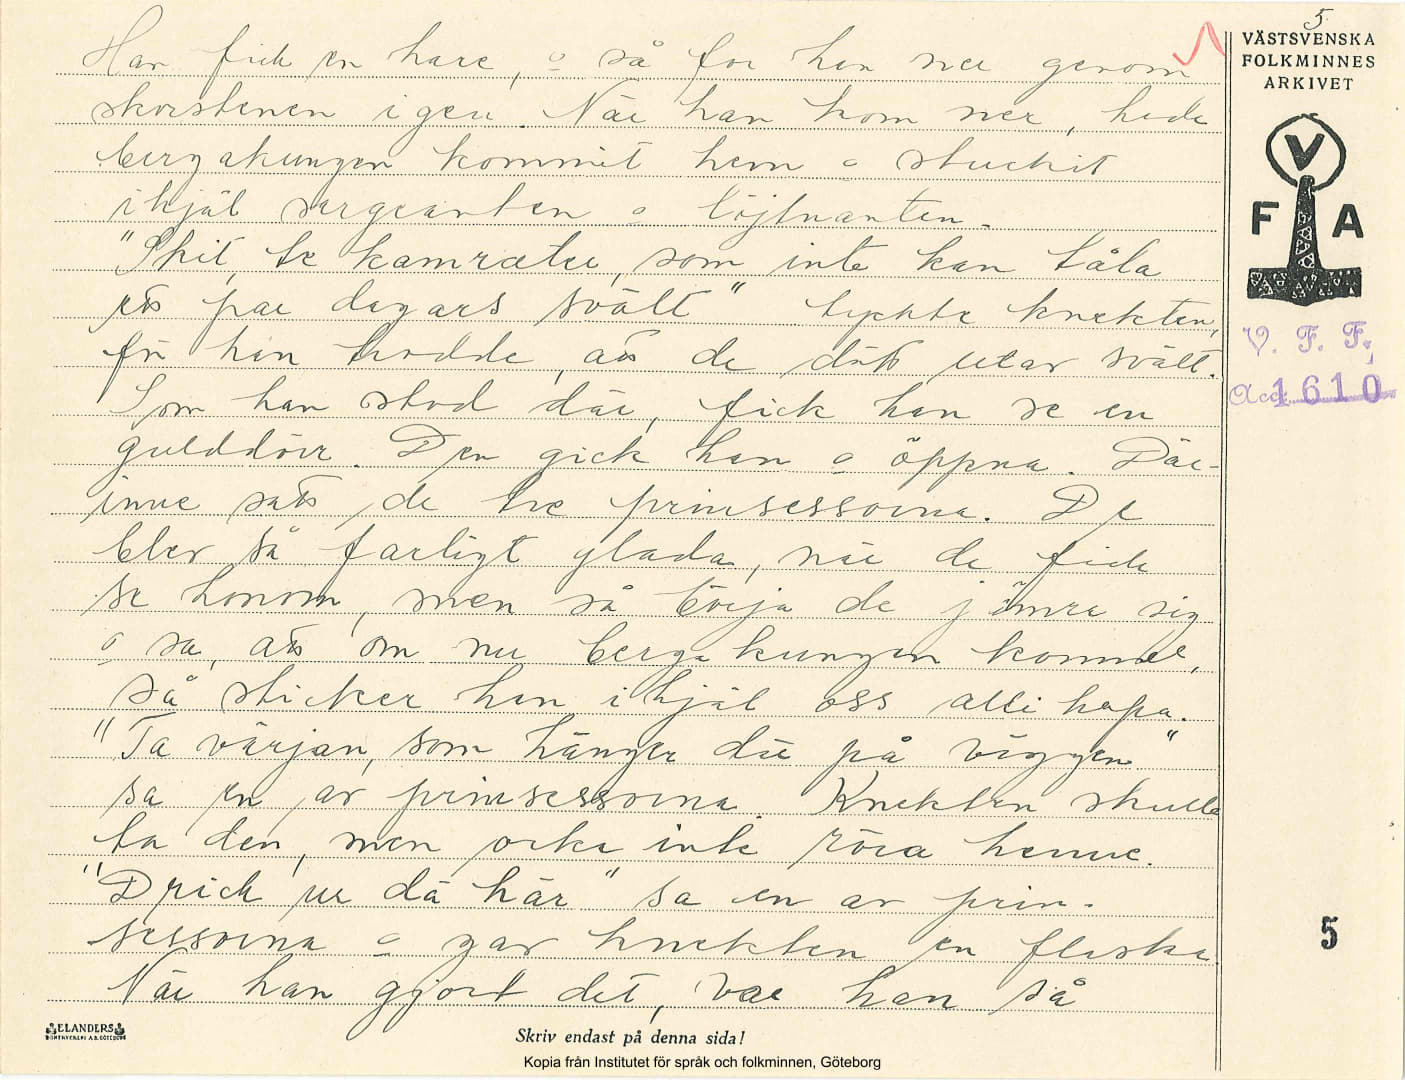 5
VÄSTSVENSKA
FOLKMINNES
ARKIVET
V
F A
V. F. F.
Acc. 1610
Han fick en hare, o så for han ner genom
skorstenen igen. När han kom ner, hade
bergakungen kommit hem o stuckit
ihjäl sergeanten o löjtnanten.
"Skit te kamrater, som inte kan tåla
ett par dagars svält" tyckte knekten,
för han trodde, att de dött utav svält.
Som han stod där, fick han se en
gulddörr. Den gick han o öppna. Där-
inne satt de tre prinsessorna. De
blev så farligt glada, när de fick
se honom, men så börja de jämra sig
o sa, att om nu bergakungen kommer,
så sticker han ihjäl oss allihopa.
"Ta värjan, som hänger där på väggen"
sa en av prinsessorna. Knekten skulle
ta den, men orka inte röra henne.
"Drick ur dä här" sa en av prin-
sessorna o gav knekten en flaska.
När han gjort det, var han så
5
ELANDERS
Skriv endast på denna sida!
Kopia från Institutet för språk och folkminnen, Göteborg